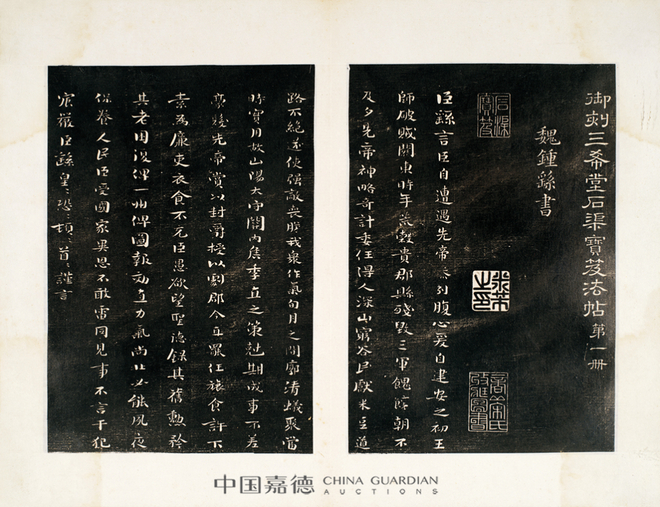 御刻三希堂石渠寶笈法帖第一冊
魏鍾繇書
石渠寶笈
臣繇言臣自遭遇先帝忝列腹心爰自建安之初王
師破賊關東時年荒穀貴郡縣殘毀三軍餽饟朝不
及夕先帝神略奇計委任得人深山窮谷民獻米豆道
路不絕遂使強敵喪膽我衆作氣旬月之間廓清蟻聚當
時實用故山陽太守關內侯季直之策剋期成事不差
豪髮先帝賞以封爵授以劇郡今直罷任旅食許下
素為廉吏衣食不充臣愚欲望聖德錄其舊勳矜
其老困復俾一州俾圖報效直力氣尚壯必能夙夜
保養人民臣受國家異恩不敢雷同見事不言干犯
宸嚴臣繇皇々恐々頓々首々謹言
中国嘉德 CHINA GUARDIAN
AUCTIONS